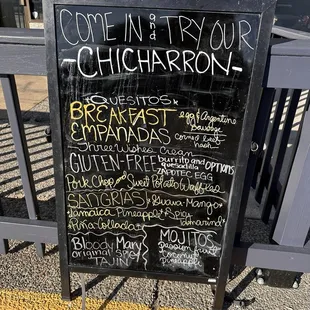 COME IN and TRY OUR
-CHICHARRON-
QUESITOS
BREAKFAST egg & Argentine Sausage
EMPANADAS corned beef hash
Three Wishes Cream
GLUTEN-FREE burrito and OPTIONS
quesadilla
ZAPOTEC EGG
Pork Chop and Sweet Potato Waffles
SANGRIAS Guava Mango
Jamaica Pineapple Spicy
Tamarind
Piña Colada
Bloody Mary MOJITOS
original passion fruit
TAJIN coconut
pineapple